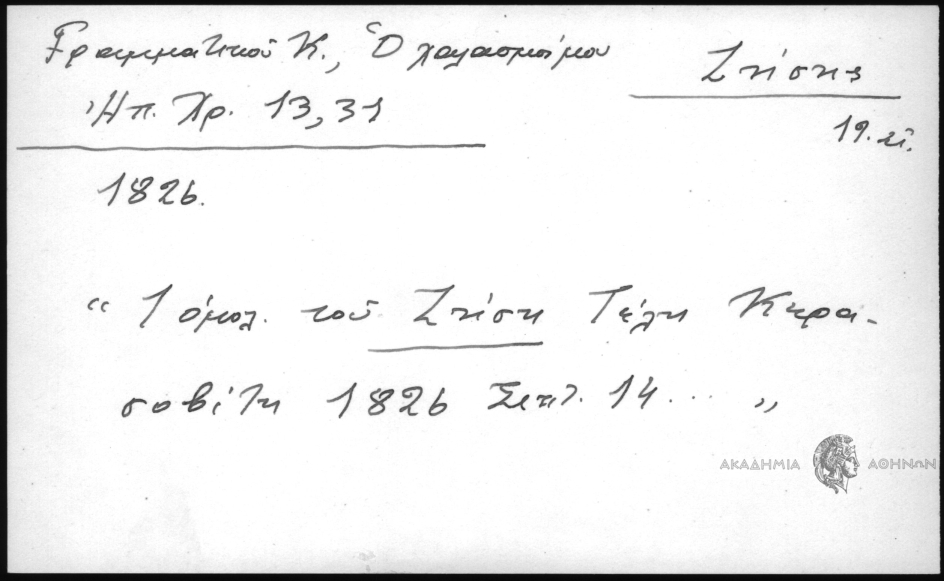 Γραμματικοῦ Κ., Ὁ χαλασμὸς μου
Ζήσης
Ἠπ. Χρ. 13, 31
19. αἰ.
1826.
“ 1 ὁμολ. τοῦ Ζήση Γέλη Κηρα-
σοβίτη 1826 Σεπτ. 14... „
ΑΚΑΔΗΜΙΑ ΑΘΗΝΩΝ